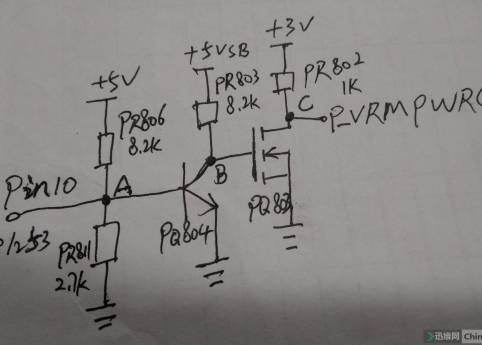 +5V
PR806
8.2K
Pin10
A
PR811
2.7K
PQ804
+5VSB
PR803
8.2K
B
+3V
PR802
1K
C
P_VRMPWRG
迅维网